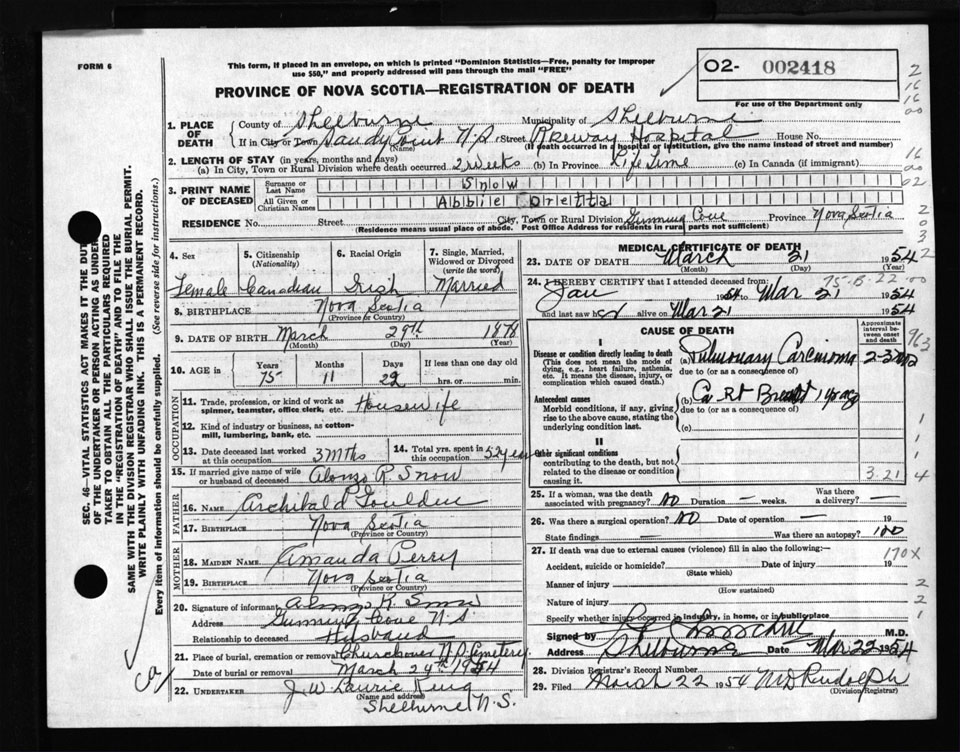 FORM 6
This form, if placed in an envelope, on which is printed "Dominion Statistics—Free, penalty for improper
use $50," and properly addressed will pass through the mail "FREE"
02- 002418
For use of the Department only
PROVINCE OF NOVA SCOTIA—REGISTRATION OF DEATH
1. PLACE OF DEATH
County of Shelburne Municipality of Shelburne
If in City or Town Sandy Point N.S. (Name) Street Hospital House No.
(If death occurred in a hospital or institution, give the name instead of street and number)
2. LENGTH OF STAY (in years, months and days)
(a) In City, Town or Rural Division where death occurred 2 weeks (b) In Province Life Time (c) In Canada (if immigrant)
3. PRINT NAME OF DECEASED
Surname or Last Name Snow
All Given or Christian Names Abbie Oretta
RESIDENCE No. Street City, Town or Rural Division Gunning Cove Province Nova Scotia
(Residence means usual place of abode. Post Office Address for residents in rural parts not sufficient)
4. Sex Female
5. Citizenship (Nationality) Canadian
6. Racial Origin Irish
7. Single, Married, Widowed or Divorced (write the word) Married
8. BIRTHPLACE Nova Scotia
(Province or Country)
9. DATE OF BIRTH March 29th 1878
(Month) (Day) (Year)
10. AGE in Years 75 Months 11 Days If less than one day old hrs. or min.
OCCUPATION
11. Trade, profession, or kind of work as spinner, teamster, office clerk, etc. Housewife
12. Kind of industry or business, as cotton-mill, lumbering, bank, etc.
13. Date deceased last worked at this occupation 3 Mths
14. Total yrs. spent in this occupation 52 years
15. If married give name of wife or husband of deceased Alonzo R. Snow
FATHER
16. NAME Archibald
17. BIRTHPLACE Nova Scotia
(Province or Country)
MOTHER
18. MAIDEN NAME Amanda Perry
19. BIRTHPLACE Nova Scotia
(Province or Country)
20. Signature of informant Alonzo R. Snow
Address Gunning Cove N.S.
Relationship to deceased Husband
21. Place of burial, cremation or removal Churchover N.S. Cemetery
Date of burial or removal March 24th 1954
22. UNDERTAKER J. W. Laurie
(Name and address)
Shelburne N.S.
MEDICAL CERTIFICATE OF DEATH
23. DATE OF DEATH March 21 1954
(Month) (Day) (Year)
24. I HEREBY CERTIFY that I attended deceased from:
Jan 1954 to Mar 21 1954
and last saw her alive on Mar 21 1954
75-B-22-00
CAUSE OF DEATH
Approximate interval between onset and death
I
Disease or condition directly leading to death
(This does not mean the mode of dying, e.g., heart failure, asthenia, etc. It means the disease, injury, or complication which caused death.)
(a) Pulmonary Carcinoma
due to (or as a consequence of)
Antecedent causes
Morbid conditions, if any, giving rise to the above cause, stating the underlying condition last.
(b) Ca Rt Breast
due to (or as a consequence of)
(c)
II
Other significant conditions
contributing to the death, but not related to the disease or condition causing it.
3.21
25. If a woman, was the death associated with pregnancy? no Duration — weeks. Was there a delivery? —
26. Was there a surgical operation? no Date of operation — 19
State findings — Was there an autopsy? no
27. If death was due to external causes (violence) fill in also the following:— 170X
Accident, suicide or homicide? Date of injury 19
(State which)
Manner of injury
(How sustained)
Nature of injury
Specify whether injury occurred in industry, in home, or in public place
Signed by M.D.
Address Shelburne Date Mar 22 1954
28. Division Registrar's Record Number
29. Filed March 22 1954 M D Rudolph
(Division Registrar)
SEC. 46—VITAL STATISTICS ACT MAKES IT THE DUTY
OF THE UNDERTAKER OR PERSON ACTING AS UNDER-
TAKER TO OBTAIN ALL THE PARTICULARS REQUIRED
IN THE "REGISTRATION OF DEATH" AND TO FILE THE
SAME WITH THE DIVISION REGISTRAR WHO SHALL ISSUE THE BURIAL PERMIT.
WRITE PLAINLY WITH UNFADING INK. THIS IS A PERMANENT RECORD.
Every item of information should be carefully supplied. (See reverse side for instructions.)